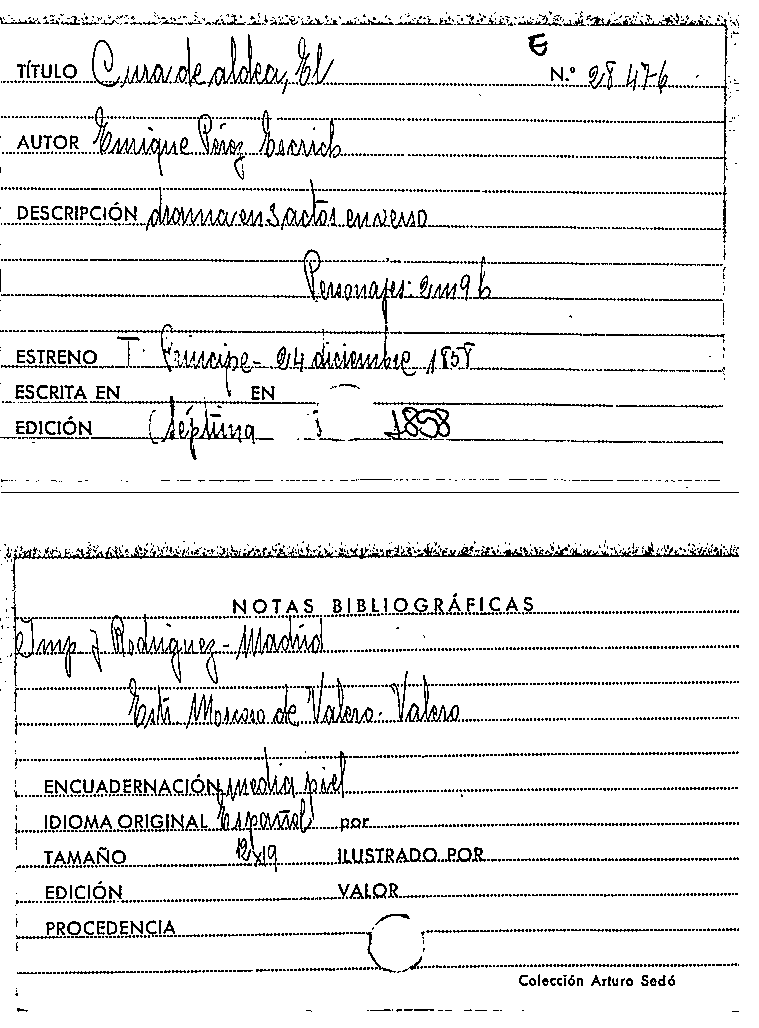 E
TÍTULO Cura de aldea, El N.º 28 476
AUTOR Enrique Pérez Escrich
DESCRIPCIÓN drama en 3 actos en verso
Personajes: 2m 9h
ESTRENO T. Príncipe - 24 diciembre 1858
ESCRITA EN EN
EDICIÓN Séptima 1858
NOTAS BIBLIOGRÁFICAS
Imp J Rodriguez - Madrid
Estr. Moscoso de Valero. Valero
ENCUADERNACIÓN media piel
IDIOMA ORIGINAL Español por
TAMAÑO 12x19 ILUSTRADO POR
EDICIÓN VALOR
PROCEDENCIA
Colección Arturo Sedó